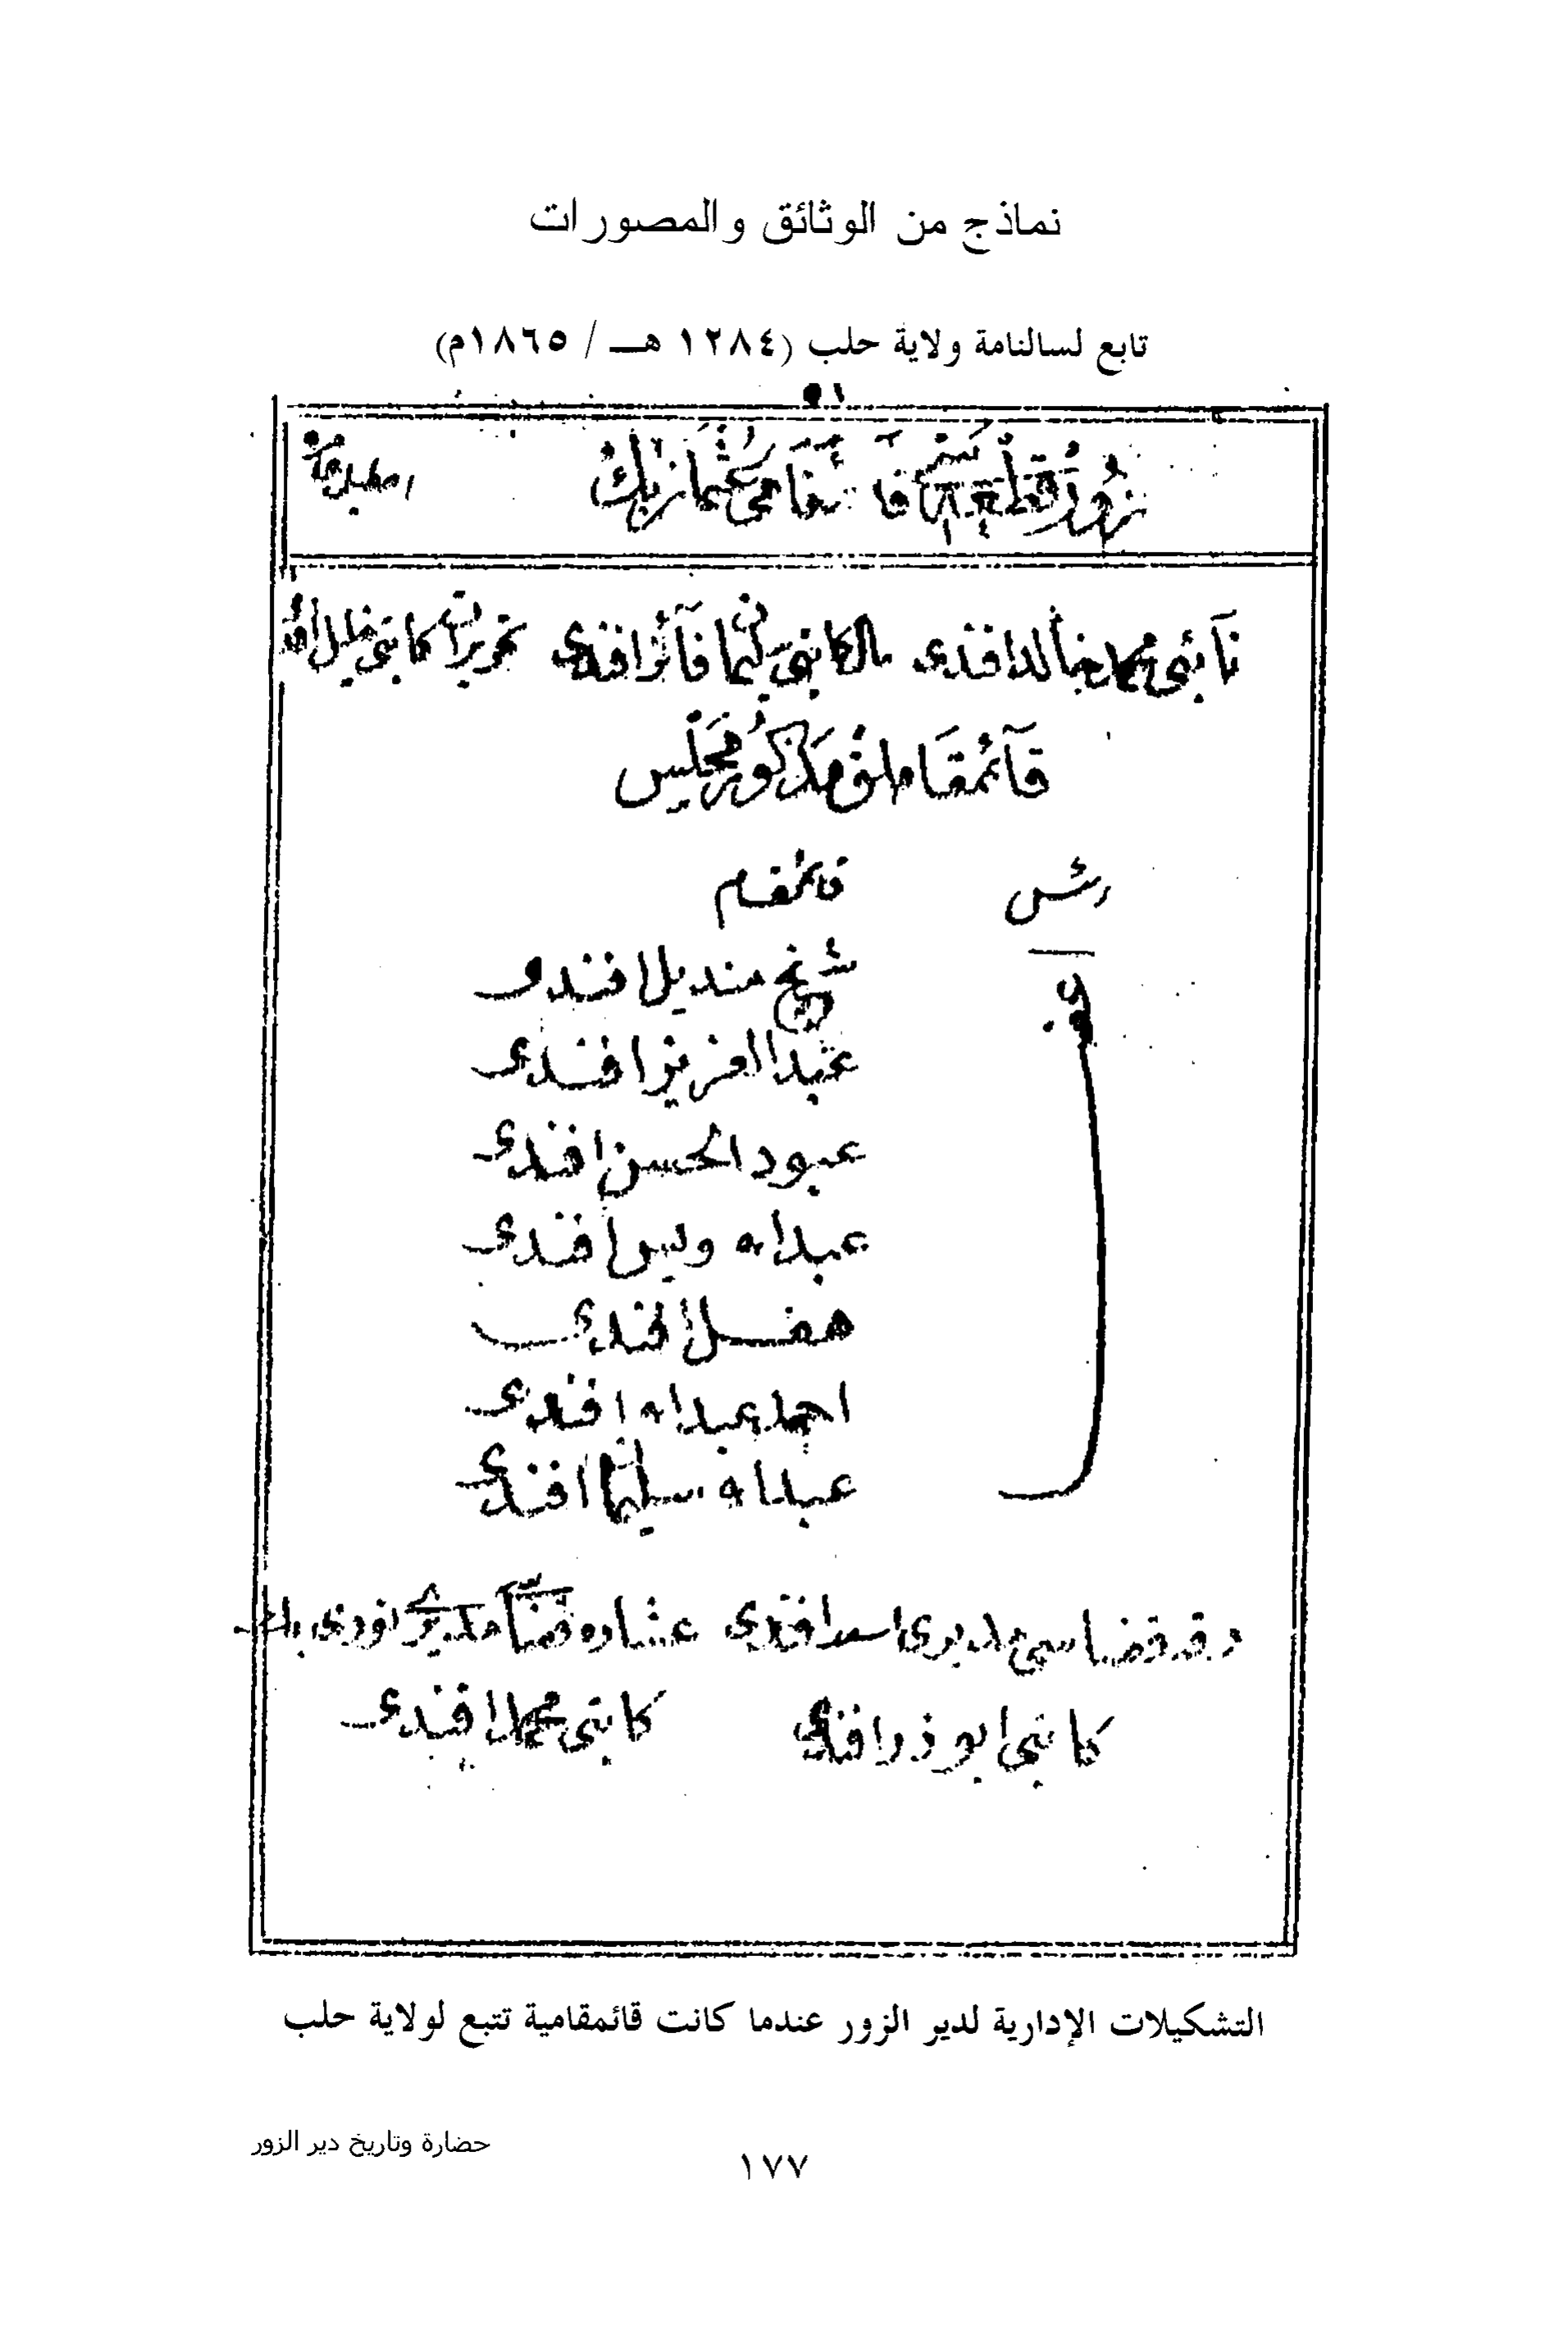 نماذج من الوثائق والمصورات
تابع لسالنامة ولاية حلب (١٢٨٤ هـــ / ١٨٦٥م)
٥١
زور قائمقامى عثمان بك
نائبى محمد خالد افندى مال كاتبى سليمان فائز افندى تحريرات كاتبى خليل افندى
قائمقاملق مذكور مجلس
رئس قائمقام
شيخ منديل افندى
عبدالعزيز افندى
عبود الحسن افندى
عبدالله ويس افندى
هفل افندى
احمد عبدالله افندى
عبدالله سليمان افندى
رقه قضاسى مديرى اسعد افندى عشاره قضا مديرى نورى بك
كاتبى ابوذر افندى كاتبى محمد افندى
التشكيلات الإدارية لدير الزور عندما كانت قائمقامية تتبع لولاية حلب
حضارة وتاريخ دير الزور
١٧٧